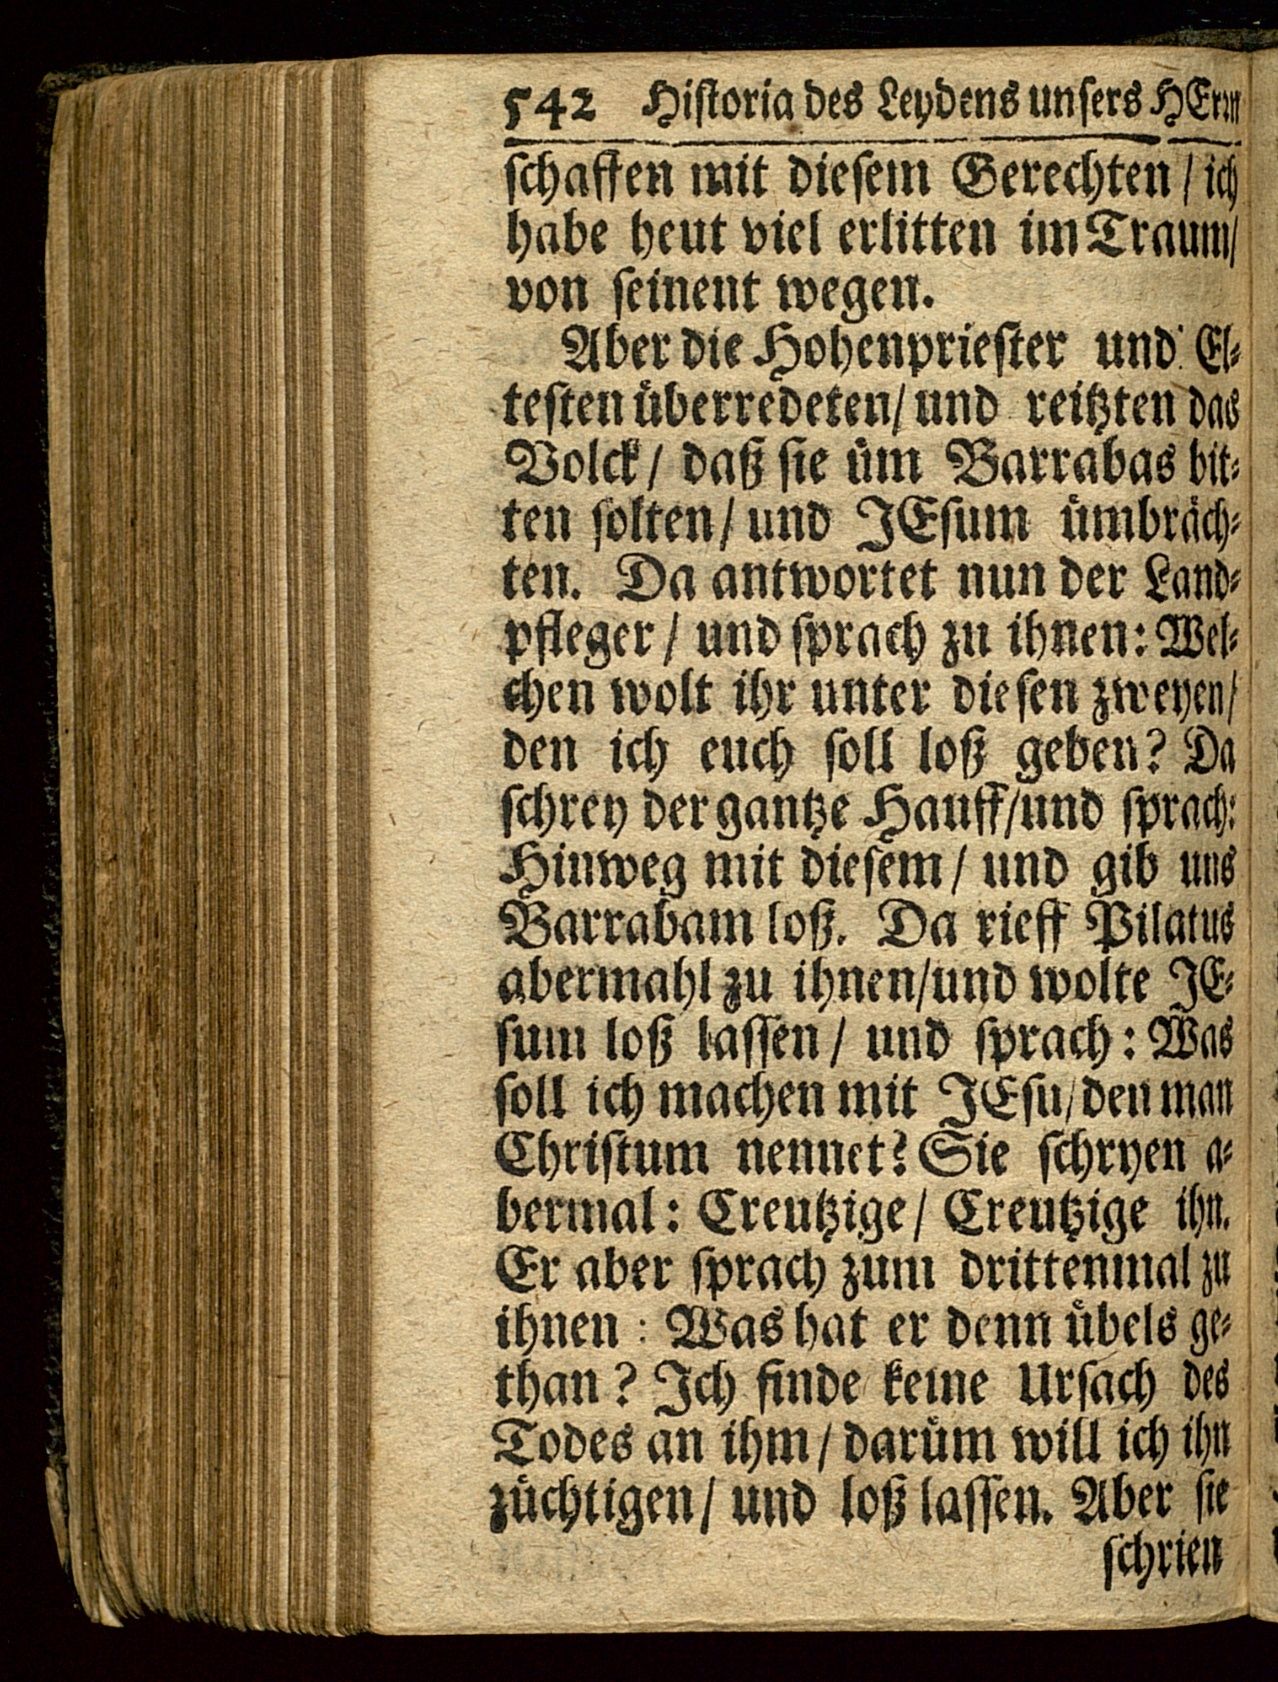 542 Historia des Leydens unsers HErrn
schaffen mit diesem Gerechten / ich
habe heut viel erlitten im Traum/
von seinent wegen.
Aber die Hohenpriester und El-
testen überredeten/ und reitzten das
Volck / daß sie üm Barrabas bit-
ten solten/ und JEsum ümbräch-
ten. Da antwortet nun der Land-
pfleger / und sprach zu ihnen: Wel-
chen wolt ihr unter diesen zweyen/
den ich euch soll loß geben? Da
schrey der gantze Hauff/und sprach:
Hinweg mit diesem / und gib uns
Barrabam loß. Da rieff Pilatus
abermahl zu ihnen/und wolte JE-
sum loß lassen / und sprach: Was
soll ich machen mit JEsu/den man
Christum nennet? Sie schryen a-
bermal: Creutzige/ Creutzige ihn.
Er aber sprach zum drittenmal zu
ihnen : Was hat er denn übels ge-
than? Ich finde keine Ursach des
Todes an ihm / darüm will ich ihn
züchtigen/ und loß lassen. Aber sie
schrien